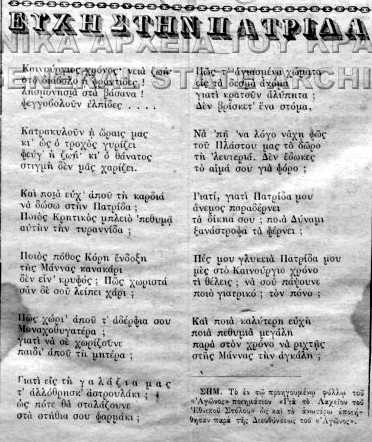 ΕΥΧΗ ΣΤΗΝ ΠΑΤΡΙΔΑ
ΝΙΚΑ ΑΡΧΕΙΑ ΤΟΥ ΚΡΑ
GENERAL STATE ARCHI
Καινούργιος χρόνος· γειὰ ζωή·
στὸ διάβολο ᾑ φροντίδες!
λησμονησιὰ στὰ βάσανα!
φεγγοβολοῦν ἐλπίδες . . . .
Κατρακυλοῦν ᾑ ὥραις μας
κι' ὡς ὁ τροχὸς γυρίζει
φεύγ' ἡ ζωὴ· κι' ὁ θάνατος
στιγμὴ δὲν μᾶς χαρίζει.
Καὶ ποιὰ εὐχ' ἀποῦ τὴ καρδιὰ
νὰ δώσω στὴν Πατρίδα;
Ποιὸς Κρητικὸς μπλειὸ 'πεθυμᾷ
αὐτὴν τὴν τυραννίδα;
Ποιὸς πόθος Κόρη ἔνδοξη
τῆς Μάννας κανακάρι
δὲν εἶν' κρυφός; Πῶς χωριστὰ
σὰν δὲ σοῦ λείπει χάρι;
Πῶς χώρι' ἀποῦ τ' ἀδέρφια σου
Μοναχοθυγατέρα;
γιατὶ νὰ σὲ χωρίζουνε
παιδὶ ἀποῦ τὴ μητέρα;
Γιατὶ εἰς τὴ γαλάζια μας
τ' ἀλλόθρησκ' ἀστρουλάκι;
ὡς πότε θὰ σταλάζουνε
στὰ στήθια σου φαρμάκι;
Πῶς τ' ἁγιασμένα χώματα
εἰς τὰ δεσμὰ ἀκόμα
γιατὶ κρατοῦν ἀλύπητα;
Δὲν βρίσκετ' ἕνα στόμα,
Νὰ 'πῇ 'να λόγο νάχῃ φῶς
τοῦ Πλάστου μας τὸ δῶρο
τὴ 'λευτεριά. Δὲν ἔδωκες
τὸ αἷμά σου γιὰ φόρο;
Γιατί, γιατὶ Πατρίδα μου
ἄνεμος παραδέρνει
τὰ δίκηα σου; ποιὰ Δύναμι
ξανάστροφα τὰ φέρνει;
Πές μου γλυκειὰ Πατρίδα μου
μὲς στὸ Καινούργιο χρόνο
τί θέλεις; νὰ σοῦ πάψουνε
ποιὸ γιατρικό; τὸν πόνο;
Καὶ ποιὰ καλύτερη εὐχὴ
ποιὰ πεθυμιὰ μεγάλη
παρὰ στὸν χρόνο νὰ ριχτῇς
στῆς Μάννας τὴν ἀγκάλη;
ΣΗΜ. Τὸ ἐν τῷ προηγουμένῳ φύλλῳ τοῦ
«Ἀγῶνος» ποιημάτιον «Γιὰ τὸ Λαχεῖον τοῦ
Ἐθνικοῦ Στόλου» ὡς καὶ τὸ ἀνωτέρω ἐποιή-
θησαν παρὰ τῆς Διευθύνσεως τοῦ «Ἀγῶνος».